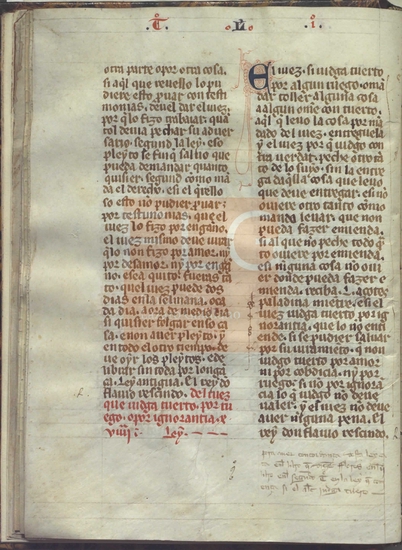 L. I.
otra parte o por otra cosa.
si aql que revello lo pu
diere esto puar con testi
monias: devel dar el iuez.
por q lo fizo trabaiar; qua
tol devia pechar su adver
sario. segund la ley. e so
pleyto se finq salvo que
pueda demandar quanto
quisier. segund como man
da el derecho. e si el qrello
so esto nō pudier puar:
por testimonias. que el
iuez lo fizo por enganno.
el iuez mismo deve iurar
q lo non fizo por amor. ni
por desamor. ny por enga
nno. e sea quito. fueras ta
to. quel iuez puede dos
dias en la semana. o ca
da dia. a ora de medio dia
si quisier folgar en so ca
sa. e non aver pleyto. y
en todo el otro tiempo. de
ve oyr los pleytos. e de
librar sin toda por longa
ça. Ley antigua. El rey dō
flavio rescindo. del iuez
que iudga tuerto. por ru
ego. o por ignorantia. x
viiii: Ley.
El iuez. si iudga tuerto
por algun ruego. o mā
dar toller alguna cosa
a algun ome con tuerto.
aql q levo la cosa por mā
dado del iuez. entreguela
y el iuez por q iudgo con
tra verdat. peche otro tā
to de lo suyo. sin la entre
ga daqlla cosa que levo.
que deve entregar. e si no
oviere otro tāto como
manda levar. que non
pueda fazer emienda.
si al que nō peche todo q
to oviere por emienda.
e si ninguna cosa nō ovi
er dond pueda fazer e
mienda. reciba. L. açotes
paladina mietre. e si el
iuez iudga tuerto por ig
norantia. que lo no enti
ende. si se pudier salvar
por su iuramieto. q non
iudgo tuerto por amor
ni por cobdicia. ny por
ruego. si nō por ignorā
cia lo q iudgo nō deve
valer. y el iuez nō deve
aver niguna pena. El
rey don flavio rescindo.